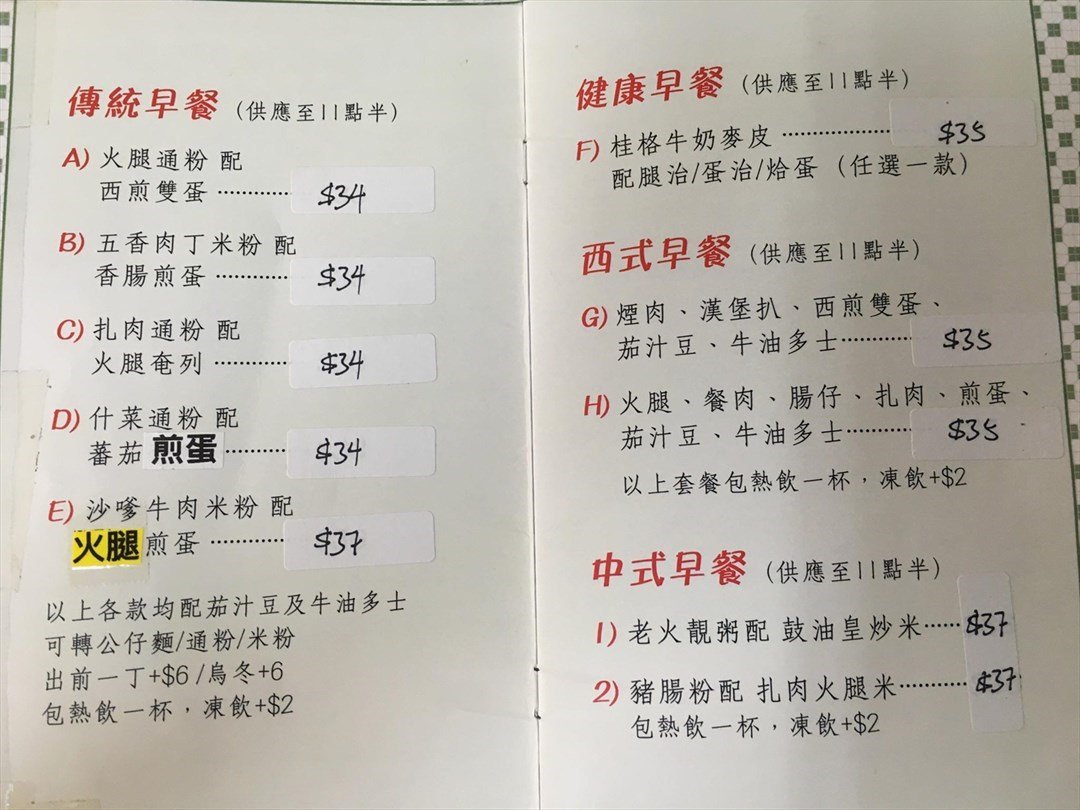 傳統早餐（供應至11點半）
A) 火腿通粉 配
西煎雙蛋 ………… $34
B) 五香肉丁米粉 配
香腸煎蛋 ………… $34
C) 扎肉通粉 配
火腿奄列 ………… $34
D) 什菜通粉 配
蕃茄煎蛋 ………… $34
E) 沙嗲牛肉米粉 配
火腿煎蛋 ………… $37
以上各款均配茄汁豆及牛油多士
可轉公仔麵/通粉/米粉
出前一丁+$6 /烏冬+6
包熱飲一杯，凍飲+$2
健康早餐（供應至11點半）
F) 桂格牛奶麥皮 ……………… $35
配腿治/蛋治/烚蛋（任選一款）
西式早餐（供應至11點半）
G) 煙肉、漢堡扒、西煎雙蛋、
茄汁豆、牛油多士………… $35
H) 火腿、餐肉、腸仔、扎肉、煎蛋、
茄汁豆、牛油多士………… $35
以上套餐包熱飲一杯，凍飲+$2
中式早餐（供應至11點半）
1) 老火靚粥配 鼓油皇炒米…… $37
2) 豬腸粉配 扎肉火腿米………… $37
包熱飲一杯，凍飲+$2